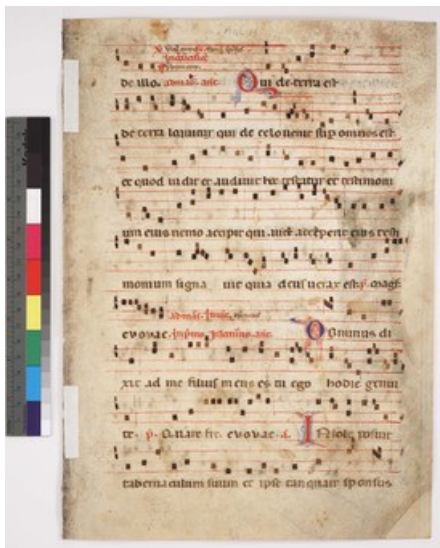 de illo. ad mag. añ. Qui de terra est
de terra loquitur qui de celo uenit sup omnes est
et quod uidit et audiuit hoc testatur et testimoni
um eius nemo accipit qui aut acceperit eius testi
monium signa uit quia deus uerax est. p. magt
euouae. in primo nocturno. añ. Dominus di
xit ad me filius meus es tu ego hodie genui
te. p. Quare fre. euouae. a. In sole posuit
tabernaculum suum et ipse tanquam sponsus